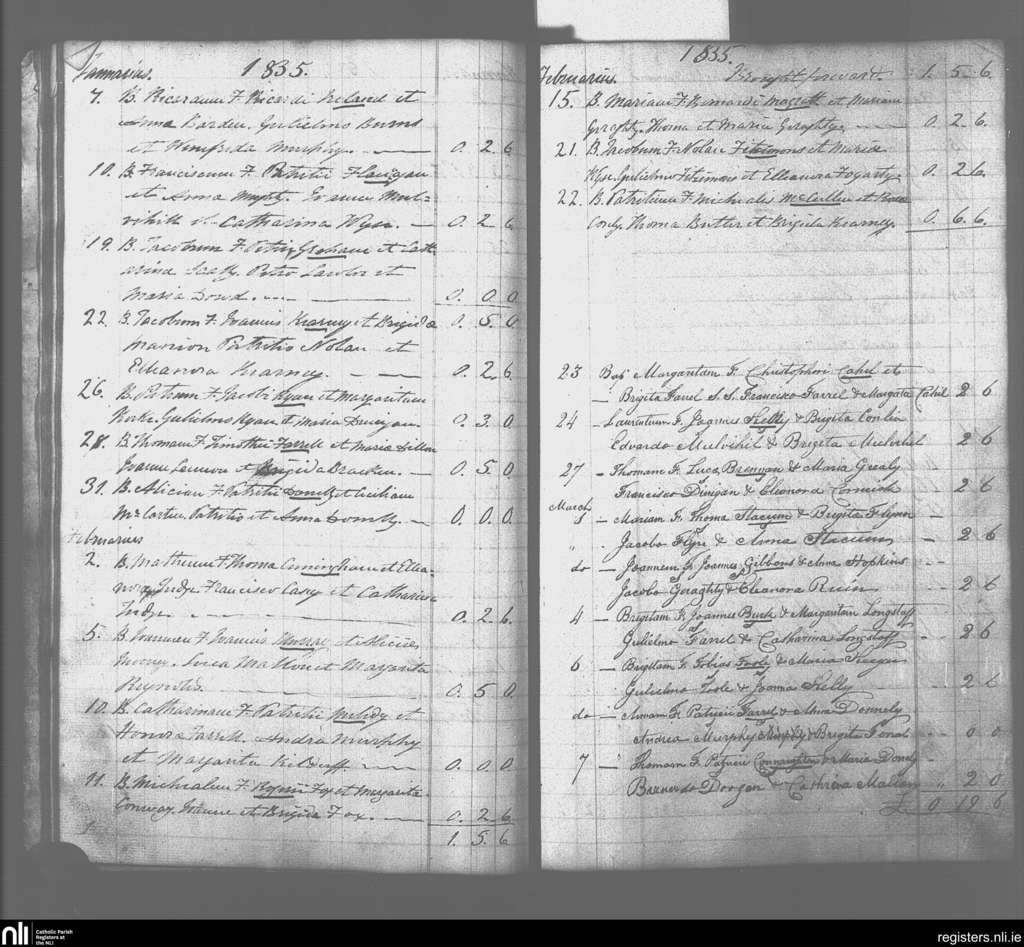 Januarius. 1835.
7. B. Ricardum F. Ricardi Ireland et
Anna Barden. Gulielmo Burns
et Winifrida Murphy. 0. 2. 6
10. B. Franciscum F. Patritii Flanigan
et Anna Murphy. Joanne Mul-
vihill et Catharina Wyer. 0. 2 6
19. B. Jacobum F. Petri Graham et Cath-
arina Patro Lawlor et
Maria Dowd. 0. 0 0
22. B. Jacobum F. Joannis Kearney et Brigida 0. 5. 0
Marrion Patritio Nolan et
Elleanora Kearney. 0. 2. 6.
26. B. Petrum F. Jacobi Ryan et Margaritam
Rorke. Gulielmo Ryan et Maria Dunigan. 0. 3. 0
28. B. Thomam F. Timothii Farrell et Maria Dillon
Joanne Lennon et Brigida Bracken. 0. 5. 0
31. B. Aliciam F. Patritii et
McCartin. Patritio et Anna 0. 0. 0
Februarius
2. B. Mattheum F. Thoma Cunningham et Ellea-
nora Judge. Francisco Casey et Catharina
Judge. 0. 2 6
5. B. Joannem F. Joannis Murray et Alicia
Mooney. Luca Mallon et Margarita
Reynolds. 0. 5 0.
10. B. Catharinam F. Patritii Melody et
Honora Farrell. Andra Murphy
et Margarita 0. 0. 0
11. B. Michaelem F. Fox et Margarita
Conway. Joanne et Brigida Fox. 0. 2 6
1. 5. 6
Februarius. 1835. Brought forward. 1. 5. 6.
15. B. Mariam F. Bernardi et Mariam
Geraghty. Thoma et Maria Geraghty. 0. 2 6.
21. B. Jacobum F. Nolan Fitzimons et Maria
Wyse. Gulielmo Fitzimons et Elleanora Fogarty. 0. 2 6.
22. B. Patritium F. Michaelis et Rosa
Conly. Thoma Butler et Brigida Kearney. 0. 6. 6.
23 Bap Margaritam F. Christophori Cahel et
Brigita Farrel S. S. Francisco Farrel & Margarita Cahil 2 6
24 - Laurentium F. Joannes Kelly & Brigita Conlin
Edvardo Mulvihil & Brigita Mulvihil 2 6
27 - Thomam F. Luca Brennan & Maria Grealy
Francisco Dinigan & Eleonora Cormick 2 6
March
1 - Mariam F. Thoma Slacum & Brigita Flynn
" Jacobo Flyn & Anna Slacum 2 6
do - Joannem F. Joannes Gibbons & Anna Hopkins
Jacobo Geraghty & Eleanora Ruin 2 6
4 - Brigitam F. Joannes Burk & Margaritam Longstaff
Gulielmo Farrel & Catharina Longstaff 2 6
6 - Brigitam F. Tobias Toole & Maria Keegan
Gulielmo Toole & Joanna Kelly 2 6
do - Annam F. Patricii Farrel & Anna Donnely
Andrea Murphy Murphy & Brigita 0 0
7 - Thomam F. Patricii Connaughton & Maria Dondy
Barnardo Dorgan & Cathrina Mallon 2 0
£ 0 19 6
nli Catholic Parish
Registers at
the NLI
registers.nli.ie